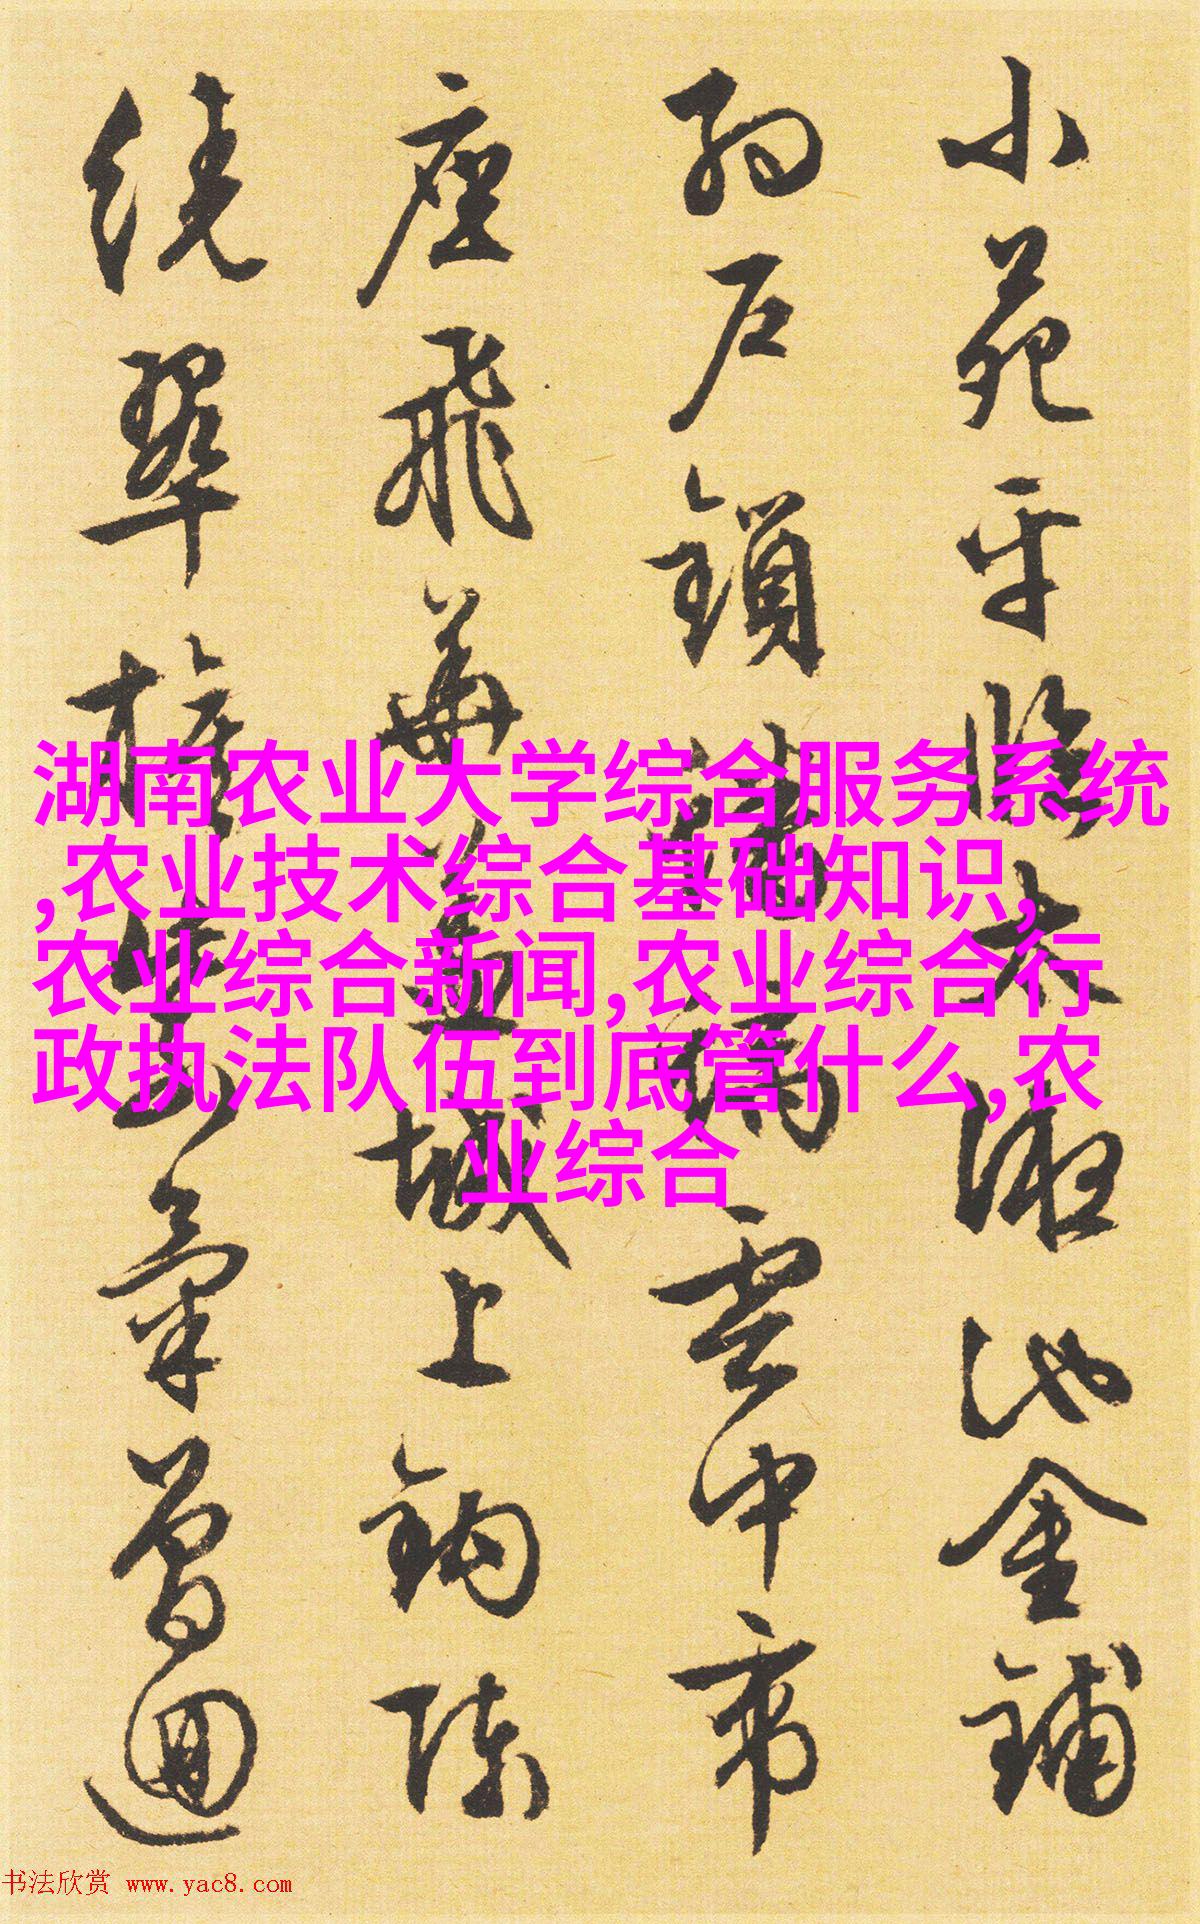 小苑平臨太液池金鋪
約戶鎖蟠螭雲中帝
座飛華蓋城上鉤陳
繞翠旂紫氣曾迴
湖南农业大学综合服务系统
,农业技术综合基础知识,
农业综合新闻,农业综合行
政执法队伍到底管什么,农
业综合
书法欣赏 www.yac8.com